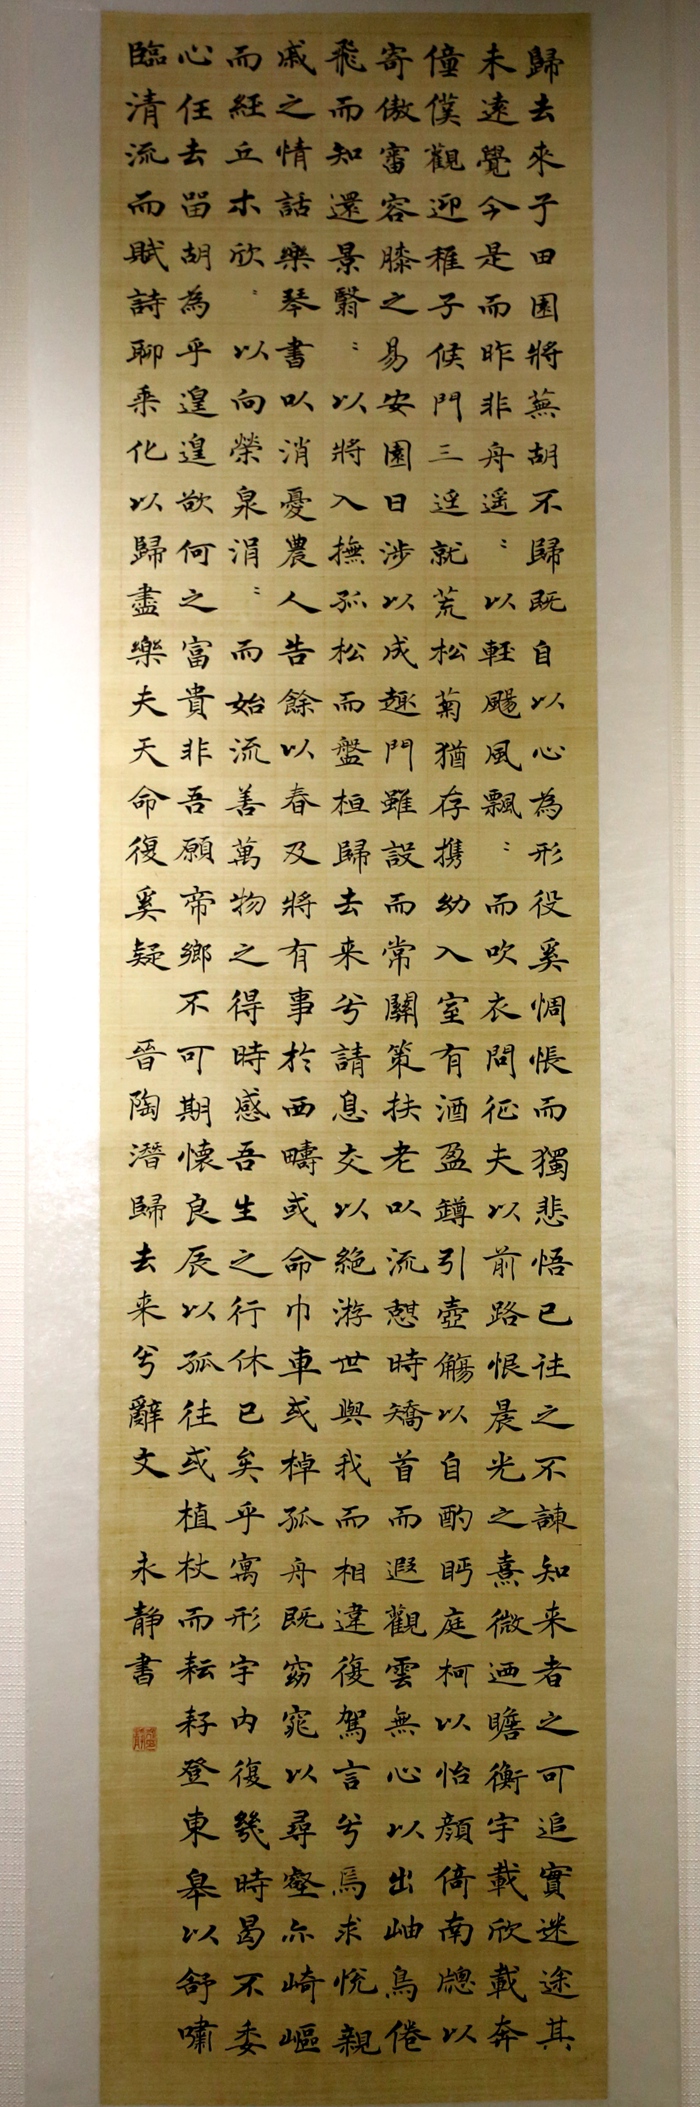 歸去來子田園將蕪胡不歸既自以心為形役奚惆悵而獨悲悟已往之不諫知来者之可追實迷途其
未遠覺今是而昨非舟遥〻以輕颺風飄〻而吹衣問征夫以前路恨晨光之熹微迺瞻衡宇載欣載奔
僮僕觀迎稚子候門三逕就荒松菊猶存攜幼入室有酒盈罇引壺觴以自酌眄庭柯以怡顏倚南牕以
寄傲審容膝之易安園日涉以成趣門雖設而常關策扶老以流憩時矯首而遐觀雲無心以出岫鳥倦
飛而知還景翳〻以將入撫孤松而盤桓歸去来兮請息交以絕游世與我而相違復駕言兮焉求悅親
戚之情話樂琴書以消憂農人告餘以春及將有事於西疇或命巾車或棹孤舟既窈窕以尋壑亦崎嶇
而経丘木欣〻以向榮泉涓〻而始流善萬物之得時感吾生之行休已矣乎寓形宇內復幾時曷不委
心任去留胡為乎遑遑欲何之富貴非吾願帝鄉不可期懷良辰以孤往或植杖而耘耔登東皋以舒嘯
臨清流而賦詩聊乘化以歸盡樂夫天命復奚疑 晉陶潛歸去来兮辭文 永靜書